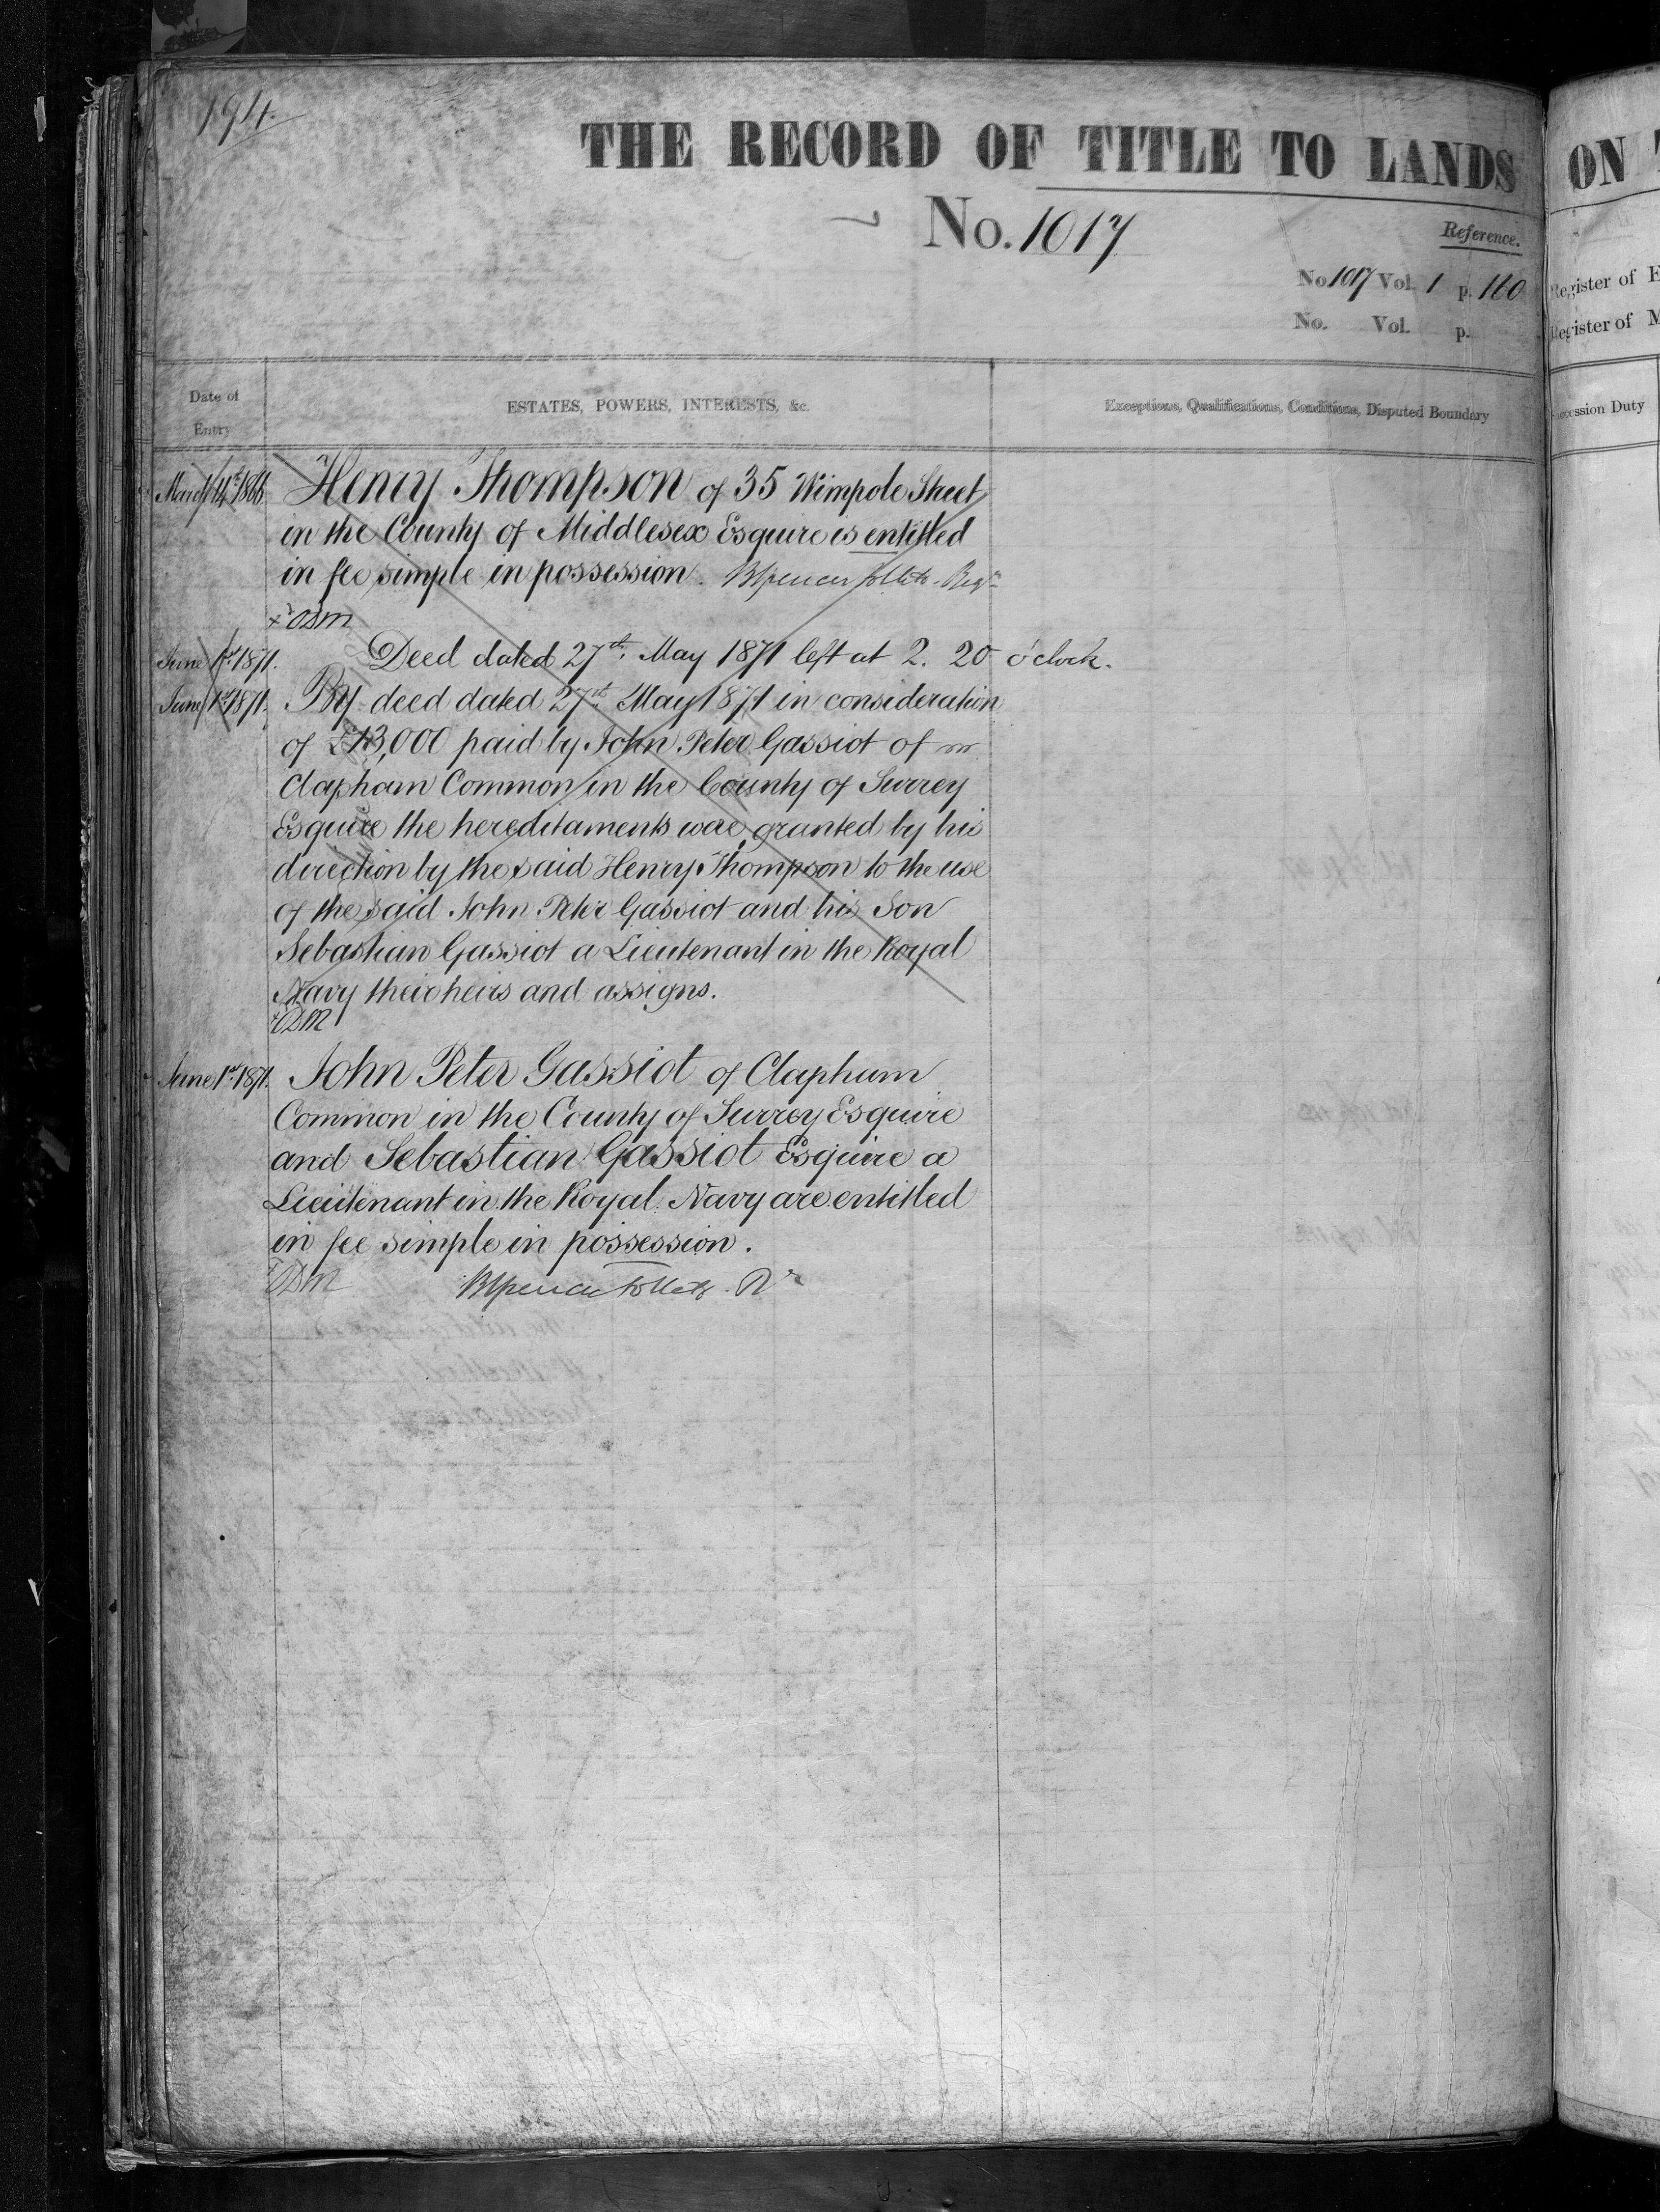 194.
THE RECORD OF TITLE TO LANDS
No. 1017
Reference.
No 1017 Vol. 1 p. 160
No. Vol. p.
Date of Entry
ESTATES, POWERS, INTERESTS, &c.
Exceptions, Qualifications, Conditions, Disputed Boundary
March 14th 1866. Henry Thompson of 35 Wimpole Street
in the County of Middlesex Esquire is entitled
in fee simple in possession. BSpencer Follett. Regr
June 1st 1871. Deed dated 27th. May 1871 left at 2. 20 o'clock.
June 1st 1871. By deed dated 27th. May 1871 in consideration
of £13,000 paid by John Peter Gassiot of
Clapham Common in the County of Surrey
Esquire the hereditaments were granted by his
direction by the said Henry Thompson to the use
of the said John Peter Gassiot and his Son
Sebastian Gassiot a Lieutenant in the Royal
Navy their heirs and assigns.
June 1st 1871. John Peter Gassiot of Clapham
Common in the County of Surrey Esquire
and Sebastian Gassiot Esquire a
Lieutenant in the Royal Navy are entitled
in fee simple in possession.
BSpencer Follett. Rr
ON
Register of
Register of
Succession Duty